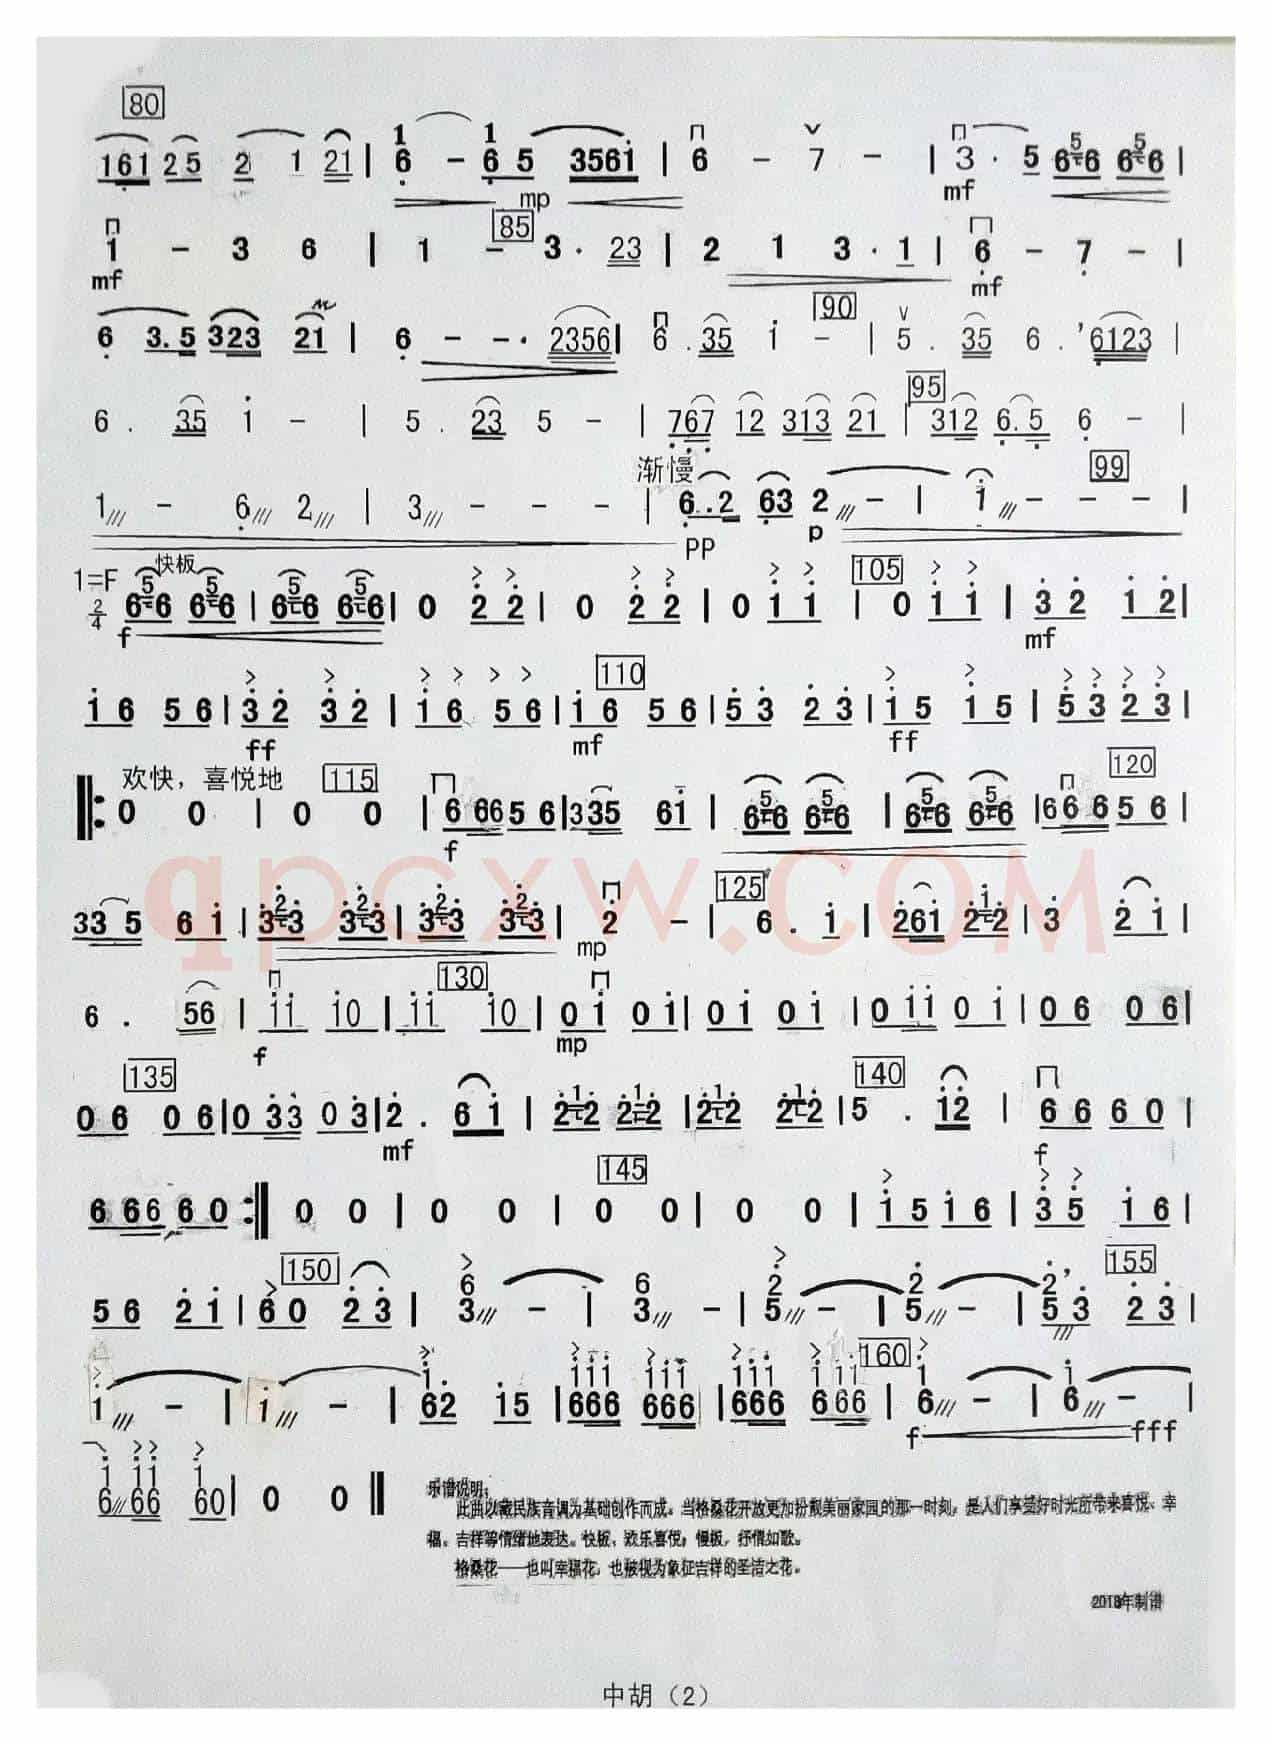 80
161 25 2 1 21 | 6 - 6 5 3561 | 6 - 7 - | 3 . 5 656 656 |
mp mf
85
1 - 3 6 | 1 - 3 . 23 | 2 1 3 . 1 | 6 - 7 - |
mf mf
90
6 3.5 323 21 | 6 - - . 2356 | 6 . 35 1 - | 5 . 35 6 . 6123 |
95
6 . 35 1 - | 5 . 23 5 - | 767 12 313 21 | 312 6.5 6 - |
渐慢 99
1/// - 6/// 2/// | 3/// - - - | 6..2 63 2/// - | 1/// - - - |
PP p
1=F 2/4 快板 105
656 656 | 656 656 | 0 2 2 | 0 2 2 | 0 1 1 | 0 1 1 | 3 2 1 2 |
f mf
110
1 6 5 6 | 3 2 3 2 | 1 6 5 6 | 1 6 5 6 | 5 3 2 3 | 1 5 1 5 | 5 3 2 3 |
ff mf ff
欢快，喜悦地 115 120
0 0 | 0 0 | 6 66 5 6 | 335 6 1 | 656 656 | 656 656 | 6 6 6 5 6 |
f
125
33 5 6 1 | 323 323 | 323 323 | 2 - | 6 . 1 | 261 212 | 3 2 1 |
mp
130
6 . 56 | 11 10 | 11 10 | 0 1 0 1 | 0 1 0 1 | 0 11 0 1 | 0 6 0 6 |
f mp
135 140
0 6 0 6 | 0 33 0 3 | 2 . 6 1 | 212 212 | 212 212 | 5 . 12 | 6 6 6 0 |
mf f
145
6 66 6 0 :| 0 0 | 0 0 | 0 0 | 0 0 | 1 5 1 6 | 3 5 1 6 |
150 155
5 6 2 1 | 6 0 2 3 | 6 3/// - | 6 3/// - | 2 5/// - | 2 5/// - | 2 5 3 2 3 |
160
1/// - | 1/// - | 1 62 15 | 111 666 111 666 | 111 666 111 666 | 1 6/// - | 1 6/// - |
f fff
1 6/// 11 66 1 60 | 0 0 ‖
乐谱说明：
此曲以藏民族音调为基础创作而成。当格桑花开放更加扮靓美丽家园的那一时刻，是人们享受好时光所带来喜悦、幸
福、吉祥等情绪地表达。快板、欢乐喜悦；慢板，抒情如歌。
格桑花——也叫幸福花，也被视为象征吉祥的圣洁之花。
2018年制谱
中胡（2）
qpcxw.COM